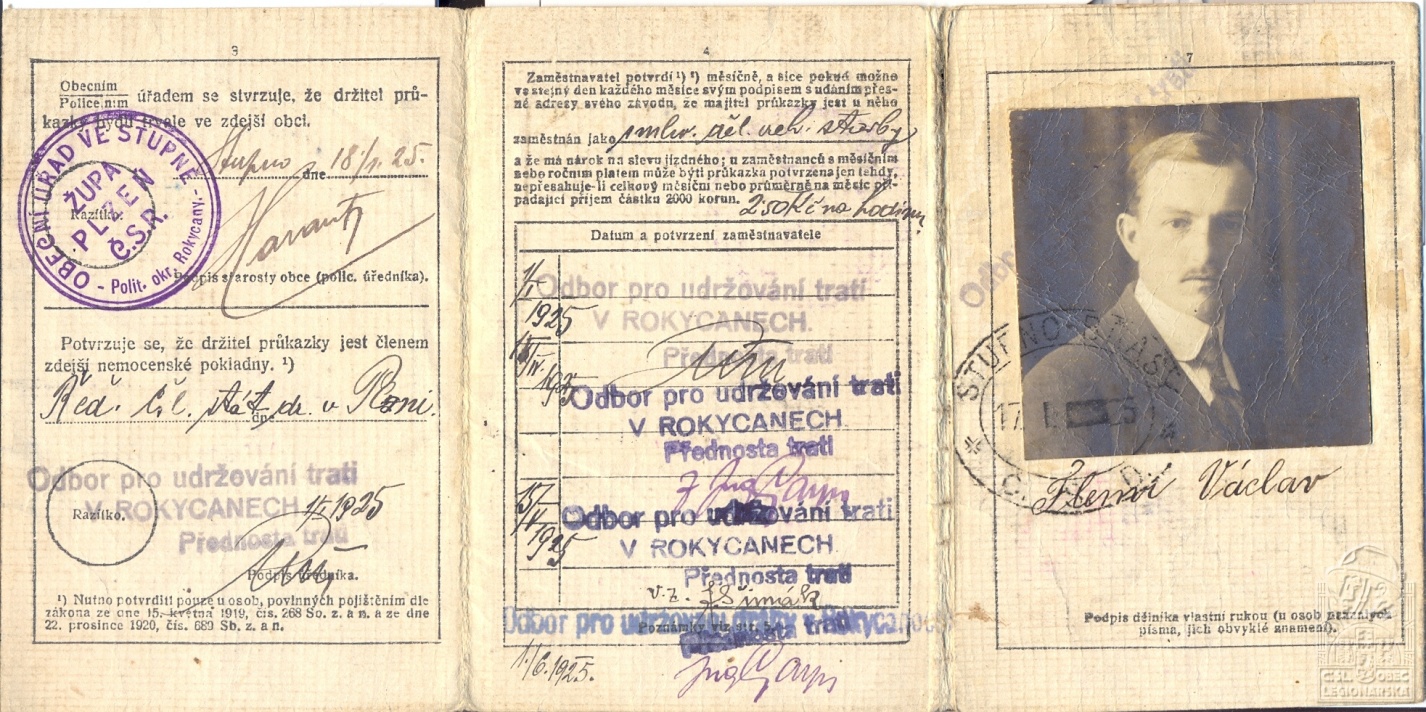 3
Obecním
Policejním úřadem se stvrzuje, že držitel prů-
kazky bydlí trvale ve zdejší obci.
Stupno dne 18/1. 25.
OBECNÍ ÚŘAD VE STUPNĚ
ŽUPA
PLZEŇ
Č.S.R.
- Polit. okr. Rokycany. -
Razítko.
Podpis starosty obce (polic. úředníka).
Potvrzuje se, že držitel průkazky jest členem
zdejší nemocenské pokladny. ¹)
Řed. čsl. stát. dr. v Plzni.
dne
Odbor pro udržování trati
V ROKYCANECH
Přednosta trati
1925
Razítko.
Podpis úředníka.
¹) Nutno potvrditi pouze u osob, povinných pojištěním dle
zákona ze dne 15. května 1919, čís. 268 Sb. z. a n. a ze dne
22. prosince 1920, čís. 689 Sb. z. a n.
4
Zaměstnavatel potvrdí ¹) ²) měsíčně, a sice pokud možno
ve stejný den každého měsíce svým podpisem s udáním přes-
né adresy svého závodu, že majitel průkazky jest u něho
zaměstnán jako smluv. děl. udr. stavby
a že má nárok na slevu jízdného; u zaměstnanců s měsíčním
nebo ročním platem může býti průkazka potvrzena jen tehdy,
nepřesahuje-li celkový měsíční nebo průměrně na měsíc při-
padající příjem částku 2000 korun. 2·50 Kč na hodinu
Datum a potvrzení zaměstnavatele
1/I.
1925
Odbor pro udržování trati
V ROKYCANECH.
Přednosta trati
1925
Odbor pro udržování trati
V ROKYCANECH.
Přednosta trati
15/
1925
Odbor pro udržování trati
V ROKYCANECH.
Přednosta trati
v. z. Šimák
Odbor pro udržování trati v Rokycanech
Poznámky viz str. 5.
Přednosta trati
1./6. 1925.
7
Odbor
STUPNO-BŘASY
17. I.
Václav
Podpis dělníka vlastní rukou (u osob neznalých
písma, jich obvyklé znamení).
ČSL. OBEC
LEGIONÁŘSKÁ